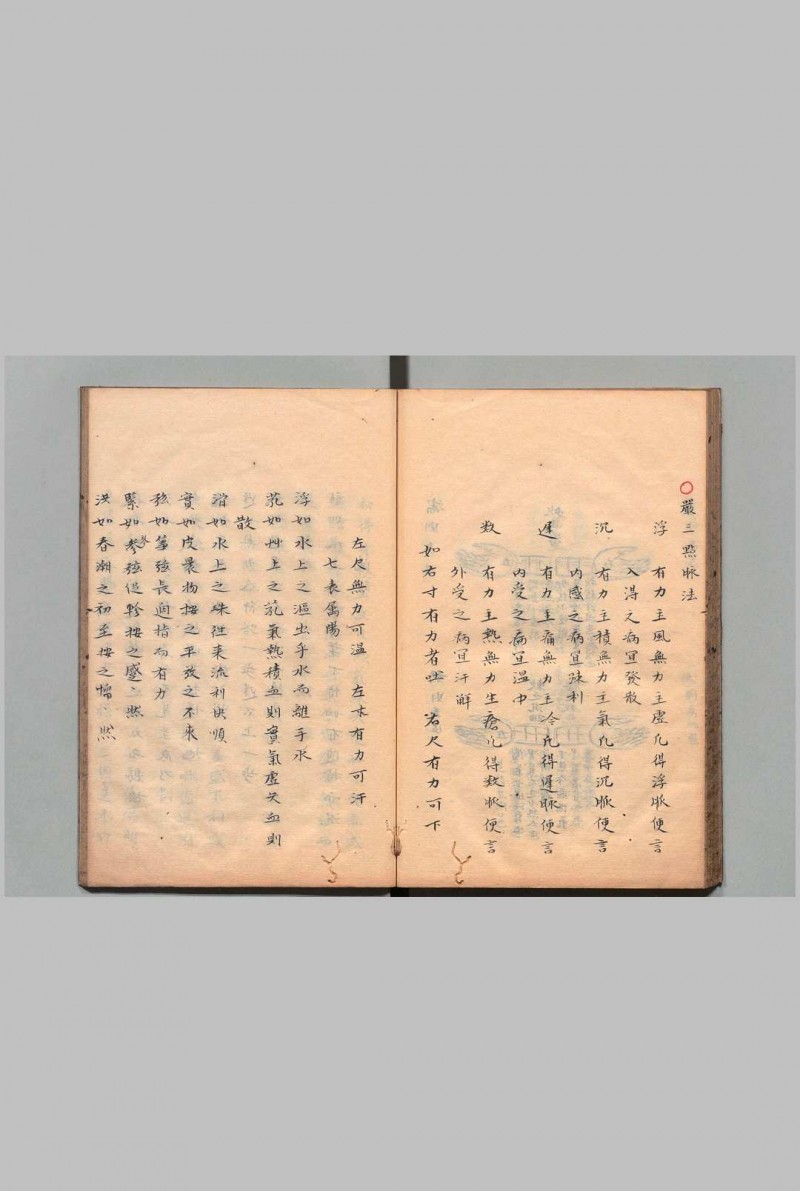 嚴三點脉法
浮 有力主風無力主虛凢得浮脉便言
入得之病宜發散
沉 有力主積無力主氣凢得沉脉便言
内感之病宜踈利
遲 有力主痛無力主冷凢得遲脉便言
内受之病宜温中
数 有力主熱無力生瘡凢得数脉便言
外受之病宜汗解
如右寸有力者吐 右尺有力可下
左尺無力可温 左寸有力可汗
七表属陽
浮如水上之漚出乎水而離乎水
芤如艸上之芤氣熱積血則實氣虛失血則
散
滑如水上之珠徃来流利快順
實如皮褁物按之平放之不来
弦如筝弦長過指而有力
緊如参弦促軫按之蹙〻然
洪如春潮之初至按之慉〻然